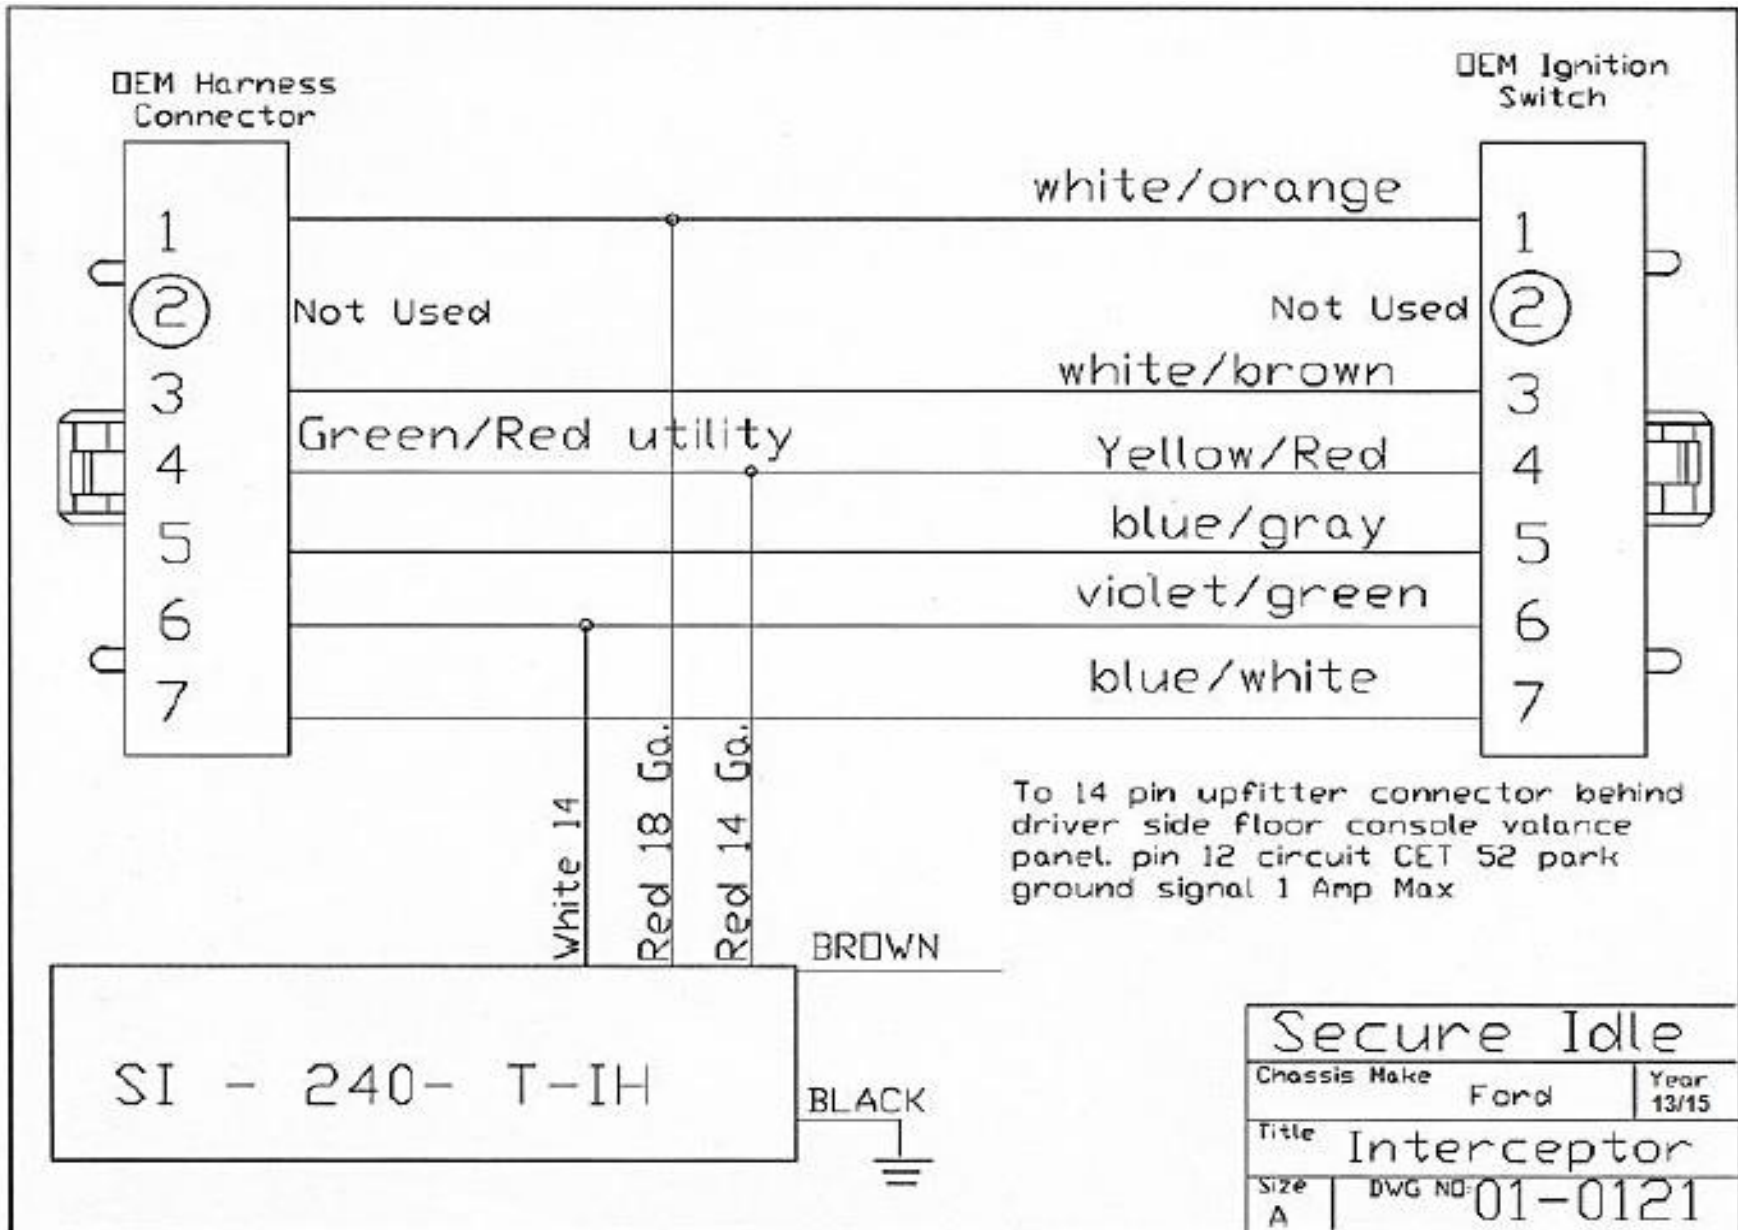 OEM Harness
Connector
OEM Ignition
Switch
1
white/orange
1
2
Not Used
Not Used
2
3
white/brown
3
Green/Red utility
4
Yellow/Red
4
5
blue/gray
5
6
violet/green
6
7
blue/white
7
White 14
Red 18 Ga.
Red 14 Ga.
To 14 pin upfitter connector behind
driver side floor console valance
panel. pin 12 circuit CET 52 park
ground signal 1 Amp Max
BROWN
SI - 240- T-IH
BLACK
Secure Idle
Chassis Make
Ford
Year
13/15
Title
Interceptor
Size
A
DWG NO:
01-0121